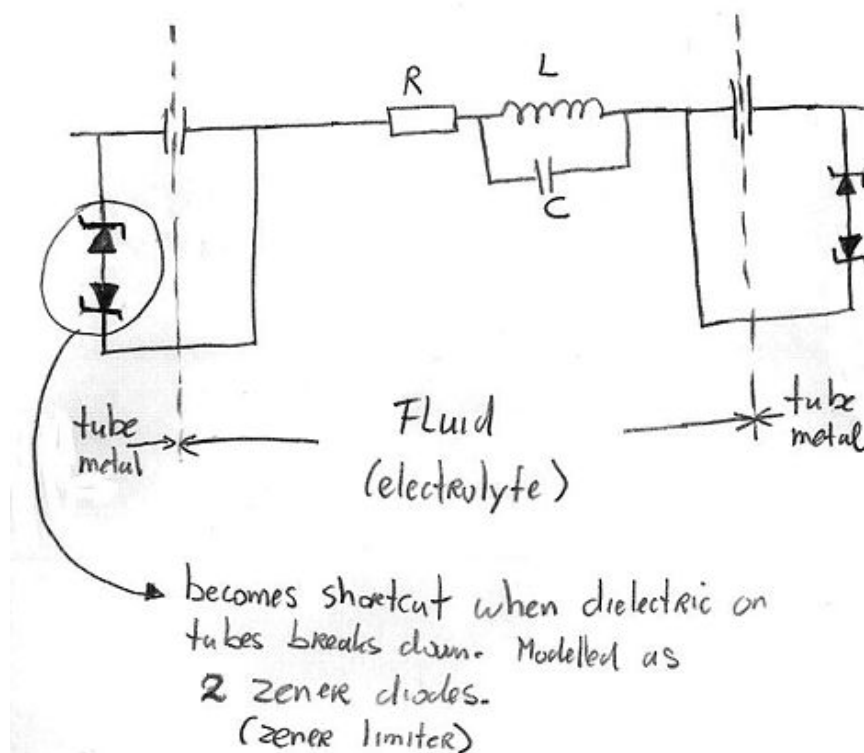 R
L
C
tube
metal
Fluid
(electrolyte)
tube
metal
becomes shortcut when dielectric on
tubes breaks down. Modelled as
2 zener diodes.
(zener limiter)